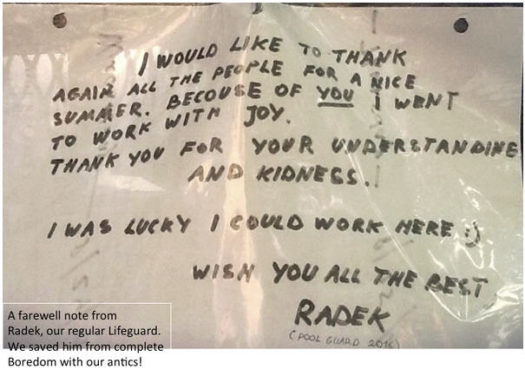 I WOULD LIKE TO THANK
AGAIN ALL THE PEOPLE FOR A NICE
SUMMER. BECOUSE OF YOU I WENT
TO WORK WITH JOY.
THANK YOU FOR YOUR UNDERSTANDING
AND KIDNESS.
I WAS LUCKY I COULD WORK HERE :)
WISH YOU ALL THE BEST
RADEK
(POOL GUARD
A farewell note from
Radek, our regular Lifeguard.
We saved him from complete
Boredom with our antics!